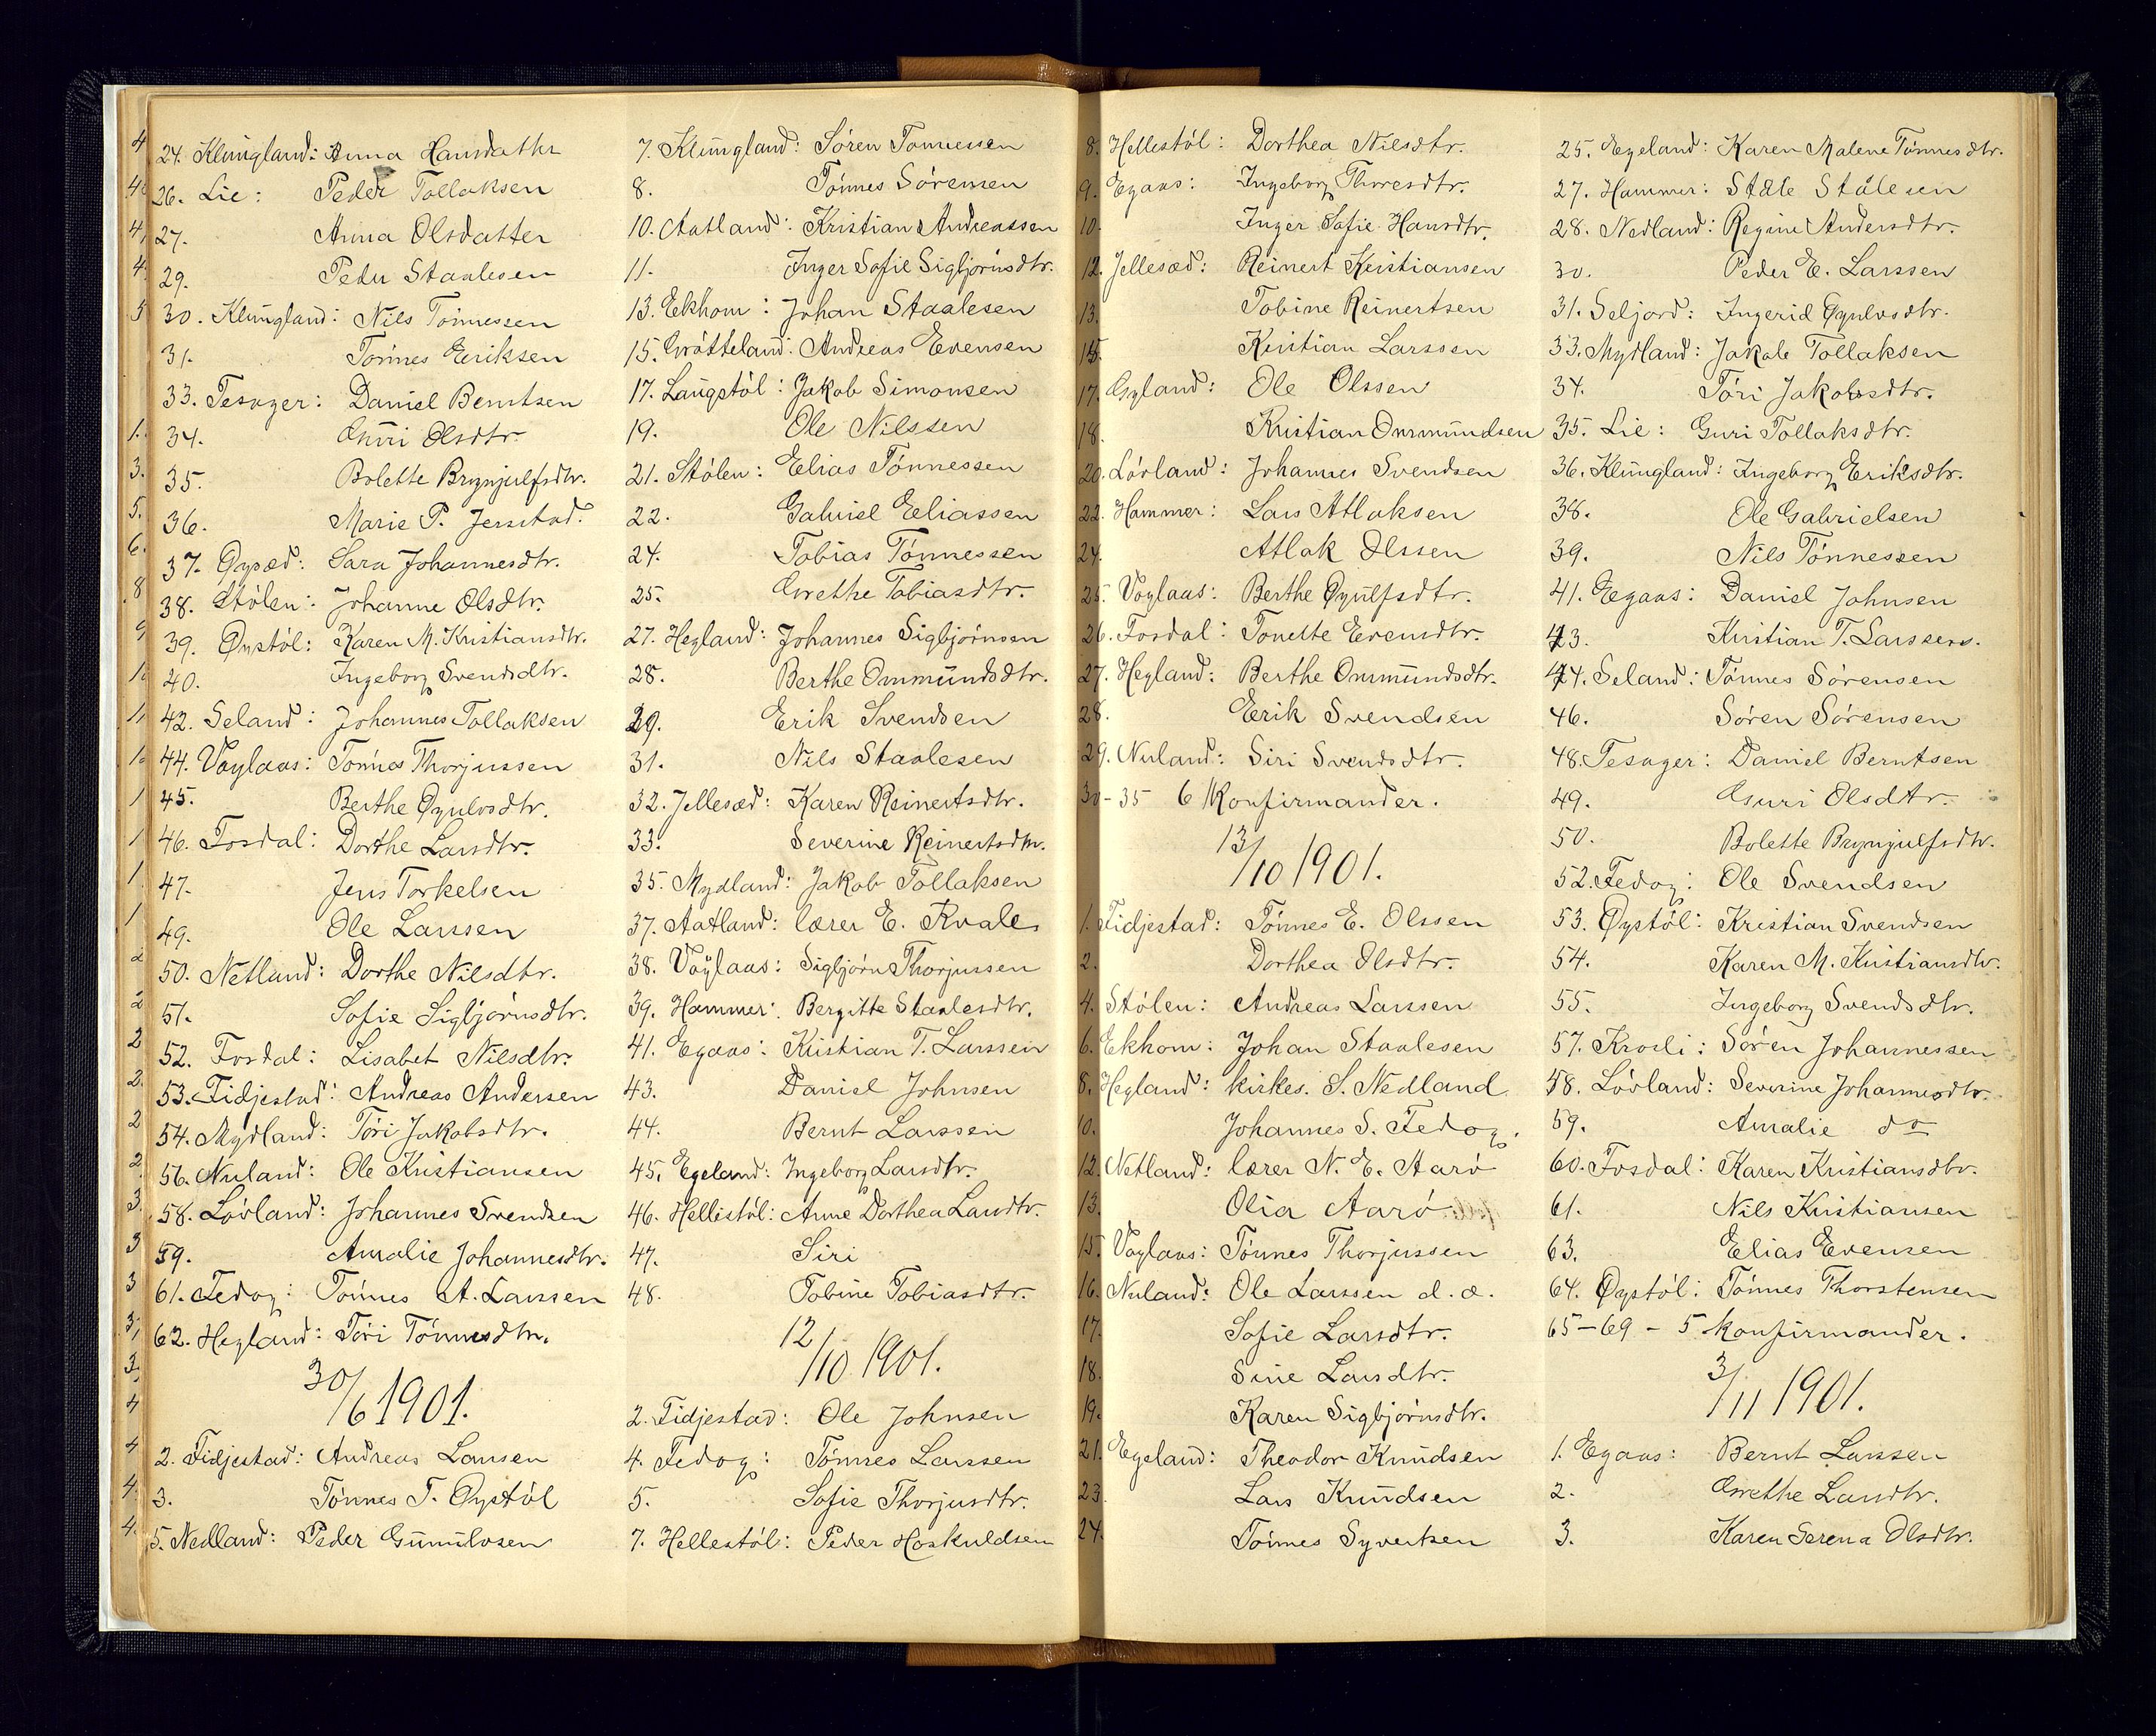 24. Klungland: Anna Hansdatter
26. Lie: Peder Tollaksen
27. Anna Olsdatter
29. Peder Staalesen
30. Klungland: Nils Tønnessen
31. Tønnes Eriksen
33. Tesager: Daniel Berntsen
34. Guri Olsdtr.
35. Bolette Brynjulfsdtr.
36. Marie P. Jerstad.
37. Øysæd: Sara Johannesdtr.
38. Stølen: Johanne Olsdtr.
39. Øystøl: Karen M. Kristiansdtr.
40. Ingeborg Svendsdtr.
42. Seland: Johannes Tollaksen
44. Vaylaas: Tønnes Thorjussen
45. Berthe Øyulvsdtr.
46. Fosdal: Dorthe Larsdtr.
47. Jens Torkelsen
49. Ole Larssen
50. Netland: Dorthe Nilsdtr.
51. Sofie Sigbjørnsdtr.
52. Fosdal: Lisabet Nilsdtr.
53. Fidjestad: Andreas Andersen
54. Mydland: Tøri Jakobsdtr.
56. Nuland: Ole Kristiansen
58. Løvland: Johannes Svendsen
59. Amalie Johannesdtr.
61. Fedog: Tønnes A. Larssen
62. Hegland: Tøri Tønnesdtr.
30/6 1901.
2. Fidjestad: Andreas Larssen
3. Tønnes T. Øystøl
5. Nedland: Peder Gunulvsen
7. Klungland: Søren Tønnessen
8. Tønnes Sørensen
10. Aatland: Kristian Andreassen
11. Inger Sofie Sigbjørnsdtr.
13. Ekhom: Johan Staalesen
15. Grøtteland: Andreas Evensen
17. Laugstøl: Jakob Simonsen
19. Ole Nilssen
21. Stølen: Elias Tønnessen
22. Gabriel Eliassen
24. Tobias Tønnessen
25. Grethe Tobiasdtr.
27. Hegland: Johannes Sigbjørnsen
28. Berthe Ommundsdtr.
29. Erik Svendsen
31. Nils Staalesen
32. Jellesæd: Karen Reinertsdtr.
33. Severine Reinertsdtr.
35. Mydland: Jakob Tollaksen
37. Aatland: lærer E. Kvale
38. Vaylaas: Sigbjørn Thorjussen
39. Hammer: Bergitte Staalesdtr.
41. Egaas: Kristian T. Larssen
43. Daniel Johnsen
44. Bernt Larssen
45. Egeland: Ingeborg Larsdtr.
46. Hellestøl: Anne Dorthea Larsdtr.
47. Siri
48. Tobine Tobiasdtr.
12/10 1901.
2. Fidjestad: Ole Johnsen
4. Fedog: Tønnes Larssen
5. Sofie Thorjusdtr.
7. Hellestøl: Peder Hoskuldsen
8. Hellestøl: Dorthea Nilsdtr.
9. Egaas: Ingeborg Thoresdtr.
10. Inger Sofie Hansdtr.
12. Jellesæd: Reinert Kristiansen
13. Tobine Reinertsen
15. Kristian Larssen
17. Gyland: Ole Olssen
18. Kristian Ommundsen
20. Løvland: Johannes Svendsen
22. Hammer: Lars Atlaksen
24. Atlak Olssen
25. Vaylaas: Berthe Øyulfsdtr.
26. Fosdal: Tonette Evensdtr.
27. Hegland: Berthe Ommundsdtr.
28. Erik Svendsen
29. Nuland: Siri Svendsdtr.
30-35 6 Konfirmander.
13/10 1901.
1. Fidjestad: Tønnes E. Olssen
2. Dorthea Olsdtr.
4. Stølen: Andreas Larssen
6. Ekhom: Johan Staalesen
8. Hegland: kirkes. S. Nedland
10. Johannes S. Fedog.
12. Netland: lærer N. E. Aarø
13. Olia Aarø
15. Vaylaas: Tønnes Thorjussen
16. Nuland: Ole Larssen d. æ.
17. Sofie Larsdtr.
18. Sine Larsdtr.
19. Karen Sigbjørnsdtr.
21. Egeland: Theodor Knudsen
23. Lars Knudsen
24. Tønnes Syvertsen
25. Egeland: Karen Malene Tønnesdtr.
27. Hammer: Ståle Stålesen
28. Nedland: Regine Andersdtr.
30. Peder E. Larssen
31. Seljord: Ingerid Øyulvsdtr.
33. Mydland: Jakob Tollaksen
34. Tøri Jakobsdtr.
35. Lie: Guri Tollaksdtr.
36. Klungland: Ingeborg Eriksdtr.
38. Ole Gabrielsen
39. Nils Tønnessen
41. Egaas: Daniel Johnsen
43. Kristian T. Larssen.
44. Seland: Tønnes Sørensen
46. Søren Sørensen
48. Tesager: Daniel Berntsen
49. Guri Olsdtr.
50. Bolette Brynjulfsdtr.
52. Fedog: Ole Svendsen
53. Øystøl: Kristian Svendsen
54. Karen M. Kristiansdtr.
55. Ingeborg Svendsdtr.
57. Krosli: Søren Johannessen
58. Løvland: Severine Johannesdtr.
59. Amalie do
60. Fosdal: Karen Kristiansdtr.
61. Nils Kristiansen
63. Elias Evensen
64. Øystøl: Tønnes Thorstensen
65-69 - 5 konfirmander.
3/11 1901.
1. Egaas: Bernt Larssen
2. Grethe Larsdtr.
3. Karen Serena Olsdtr.